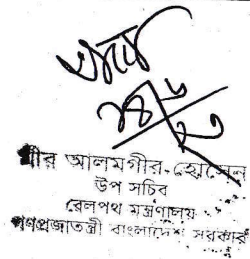 মীর আলমগীর হোসেন
উপ সচিব
রেলপথ মন্ত্রণালয়
গণপ্রজাতন্ত্রী বাংলাদেশ সরকার